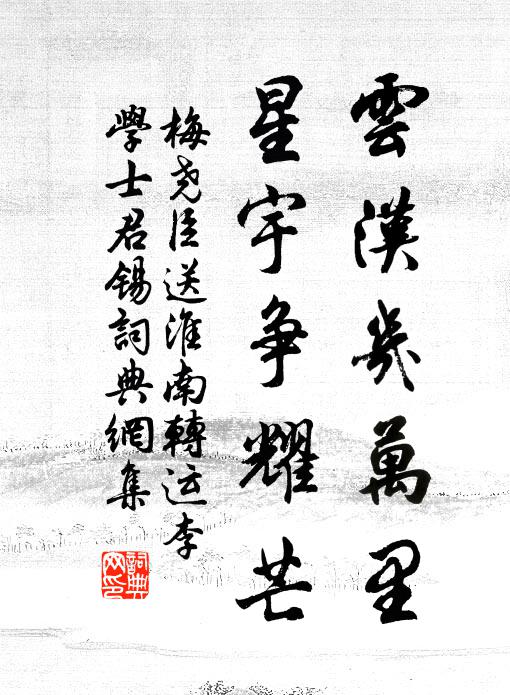 雲漢幾萬里
星宇争耀芒
梅尧臣送淮南轉运李
學士君锡詞典網集